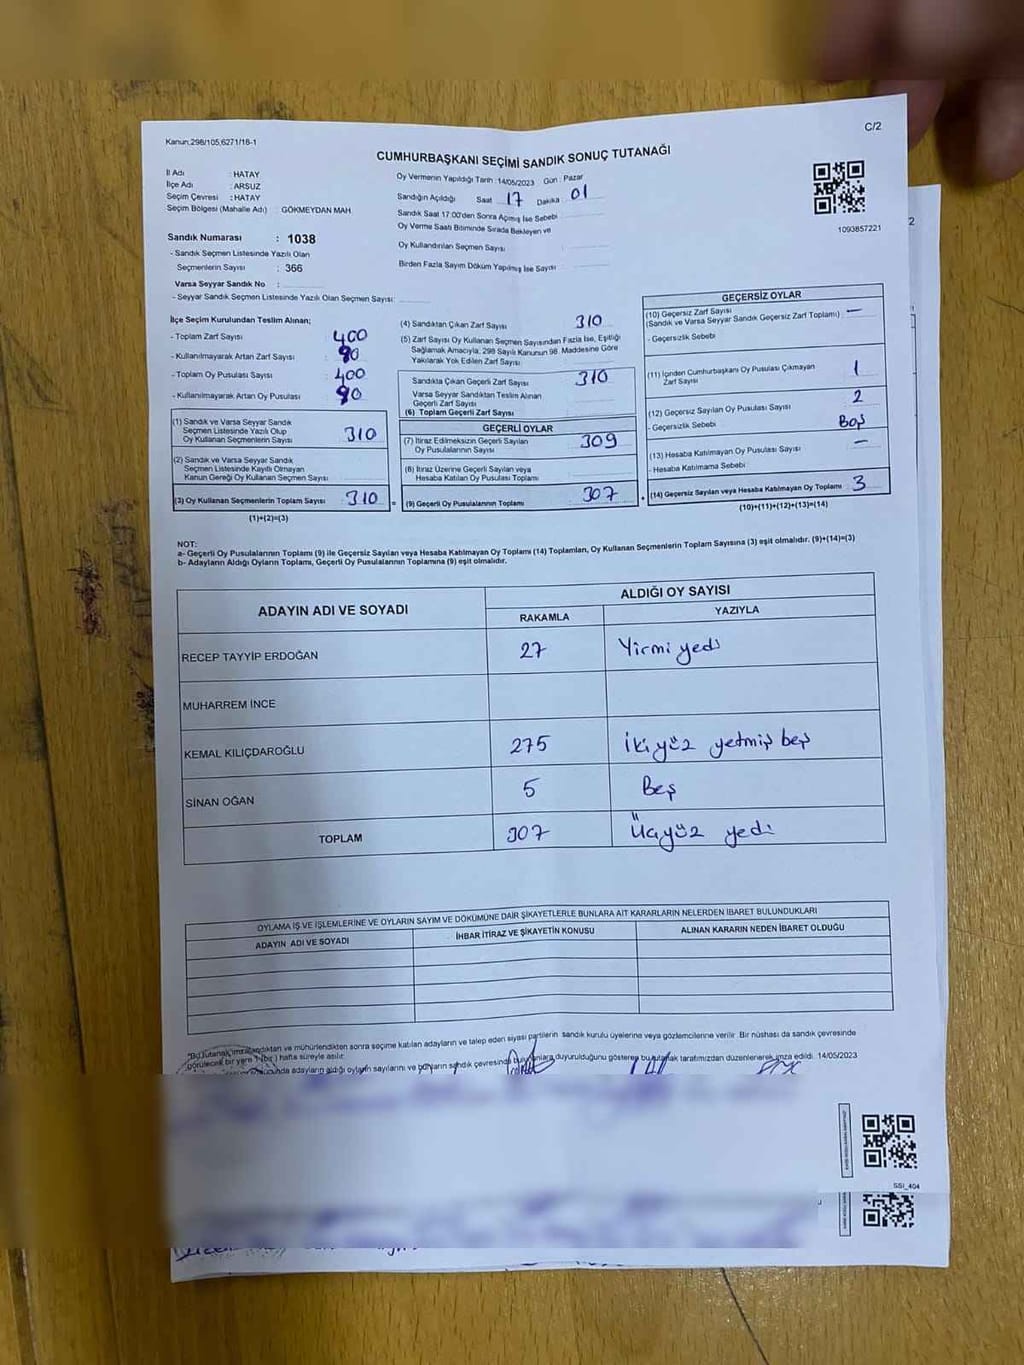 C/2
Kanun,298/105;6271/18-1
CUMHURBAŞKANI SEÇİMİ SANDIK SONUÇ TUTANAĞI
İl Adı : HATAY
İlçe Adı : ARSUZ
Seçim Çevresi : HATAY
Seçim Bölgesi (Mahalle Adı) : GÖKMEYDAN MAH.
Sandık Numarası : 1038
- Sandık Seçmen Listesinde Yazılı Olan
Seçmenlerin Sayısı : 366
Varsa Seyyar Sandık No :
- Seyyar Sandık Seçmen Listesinde Yazılı Olan Seçmen Sayısı:
Oy Vermenin Yapıldığı Tarih : 14/05/2023 Gün : Pazar
Sandığın Açıldığı Saat 17 Dakika 01
Sandık Saat 17:00'den Sonra Açılmış İse Sebebi
Oy Verme Saati Bitiminde Sırada Bekleyen ve
Oy Kullandırılan Seçmen Sayısı :
Birden Fazla Sayım Döküm Yapılmış İse Sayısı :
1093857221
İlçe Seçim Kurulundan Teslim Alınan;
- Toplam Zarf Sayısı 400
- Kullanılmayarak Artan Zarf Sayısı : 90
- Toplam Oy Pusulası Sayısı : 400
- Kullanılmayarak Artan Oy Pusulası 90
(1) Sandık ve Varsa Seyyar Sandık
Seçmen Listesinde Yazılı Olup
Oy Kullanan Seçmenlerin Sayısı 310
(2) Sandık ve Varsa Seyyar Sandık
Seçmen Listesinde Kayıtlı Olmayan
Kanun Gereği Oy Kullanan Seçmen Sayısı
(3) Oy Kullanan Seçmenlerin Toplam Sayısı 310 =
(1)+(2)=(3)
(4) Sandıktan Çıkan Zarf Sayısı 310
(5) Zarf Sayısı Oy Kullanan Seçmen Sayısından Fazla İse, Eşitliği
Sağlamak Amacıyla, 298 Sayılı Kanunun 98. Maddesine Göre
Yakılarak Yok Edilen Zarf Sayısı :
Sandıkta Çıkan Geçerli Zarf Sayısı 310
Varsa Seyyar Sandıktan Teslim Alınan
Geçerli Zarf Sayısı
(6) Toplam Geçerli Zarf Sayısı
GEÇERLİ OYLAR
(7) İtiraz Edilmeksizin Geçerli Sayılan
Oy Pusulalarının Sayısı 309
(8) İtiraz Üzerine Geçerli Sayılan veya
Hesaba Katılan Oy Pusulası Toplamı
(9) Geçerli Oy Pusulalarının Toplamı 307
GEÇERSİZ OYLAR
(10) Geçersiz Zarf Sayısı
(Sandık ve Varsa Seyyar Sandık Geçersiz Zarf Toplamı) : —
- Geçersizlik Sebebi
(11) İçinden Cumhurbaşkanı Oy Pusulası Çıkmayan
Zarf Sayısı 1
(12) Geçersiz Sayılan Oy Pusulası Sayısı 2
- Geçersizlik Sebebi Boş
(13) Hesaba Katılmayan Oy Pusulası Sayısı —
- Hesaba Katılmama Sebebi
(14) Geçersiz Sayılan veya Hesaba Katılmayan Oy Toplamı 3
(10)+(11)+(12)+(13)=(14)
NOT:
a- Geçerli Oy Pusulalarının Toplamı (9) ile Geçersiz Sayılan veya Hesaba Katılmayan Oy Toplamı (14) Toplamları, Oy Kullanan Seçmenlerin Toplam Sayısına (3) eşit olmalıdır. (9)+(14)=(3)
b- Adayların Aldığı Oyların Toplamı, Geçerli Oy Pusulalarının Toplamına (9) eşit olmalıdır.
ADAYIN ADI VE SOYADI
ALDIĞI OY SAYISI
RAKAMLA YAZIYLA
RECEP TAYYİP ERDOĞAN 27 Yirmi yedi
MUHARREM İNCE
KEMAL KILIÇDAROĞLU 275 İkiyüz yetmiş beş
SİNAN OĞAN 5 Beş
TOPLAM 307 Üçyüz yedi
OYLAMA İŞ VE İŞLEMLERİNE VE OYLARIN SAYIM VE DÖKÜMÜNE DAİR ŞİKAYETLERLE BUNLARA AİT KARARLARIN NELERDEN İBARET BULUNDUKLARI
ADAYIN ADI VE SOYADI İHBAR İTİRAZ VE ŞİKAYETİN KONUSU ALINAN KARARIN NEDEN İBARET OLDUĞU
"Bu tutanak, imzalandıktan ve mühürlendikten sonra seçime katılan adayların ve talep eden siyasi partilerin sandık kurulu üyelerine veya gözlemcilerine verilir. Bir nüshası da sandık çevresinde
görülecek bir yere 1 (bir) hafta süreyle asılır.
adayların aldığı oyların sayılarını ve bunların sandık çevresinde duyurulduğunu gösteren bu tutanak tarafımızdan düzenlenerek imza edildi. 14/05/2023
SSI_404